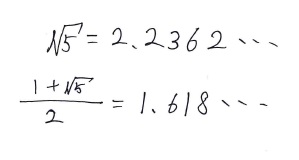 √5 = 2.2362...
(1+√5)/2 = 1.618...